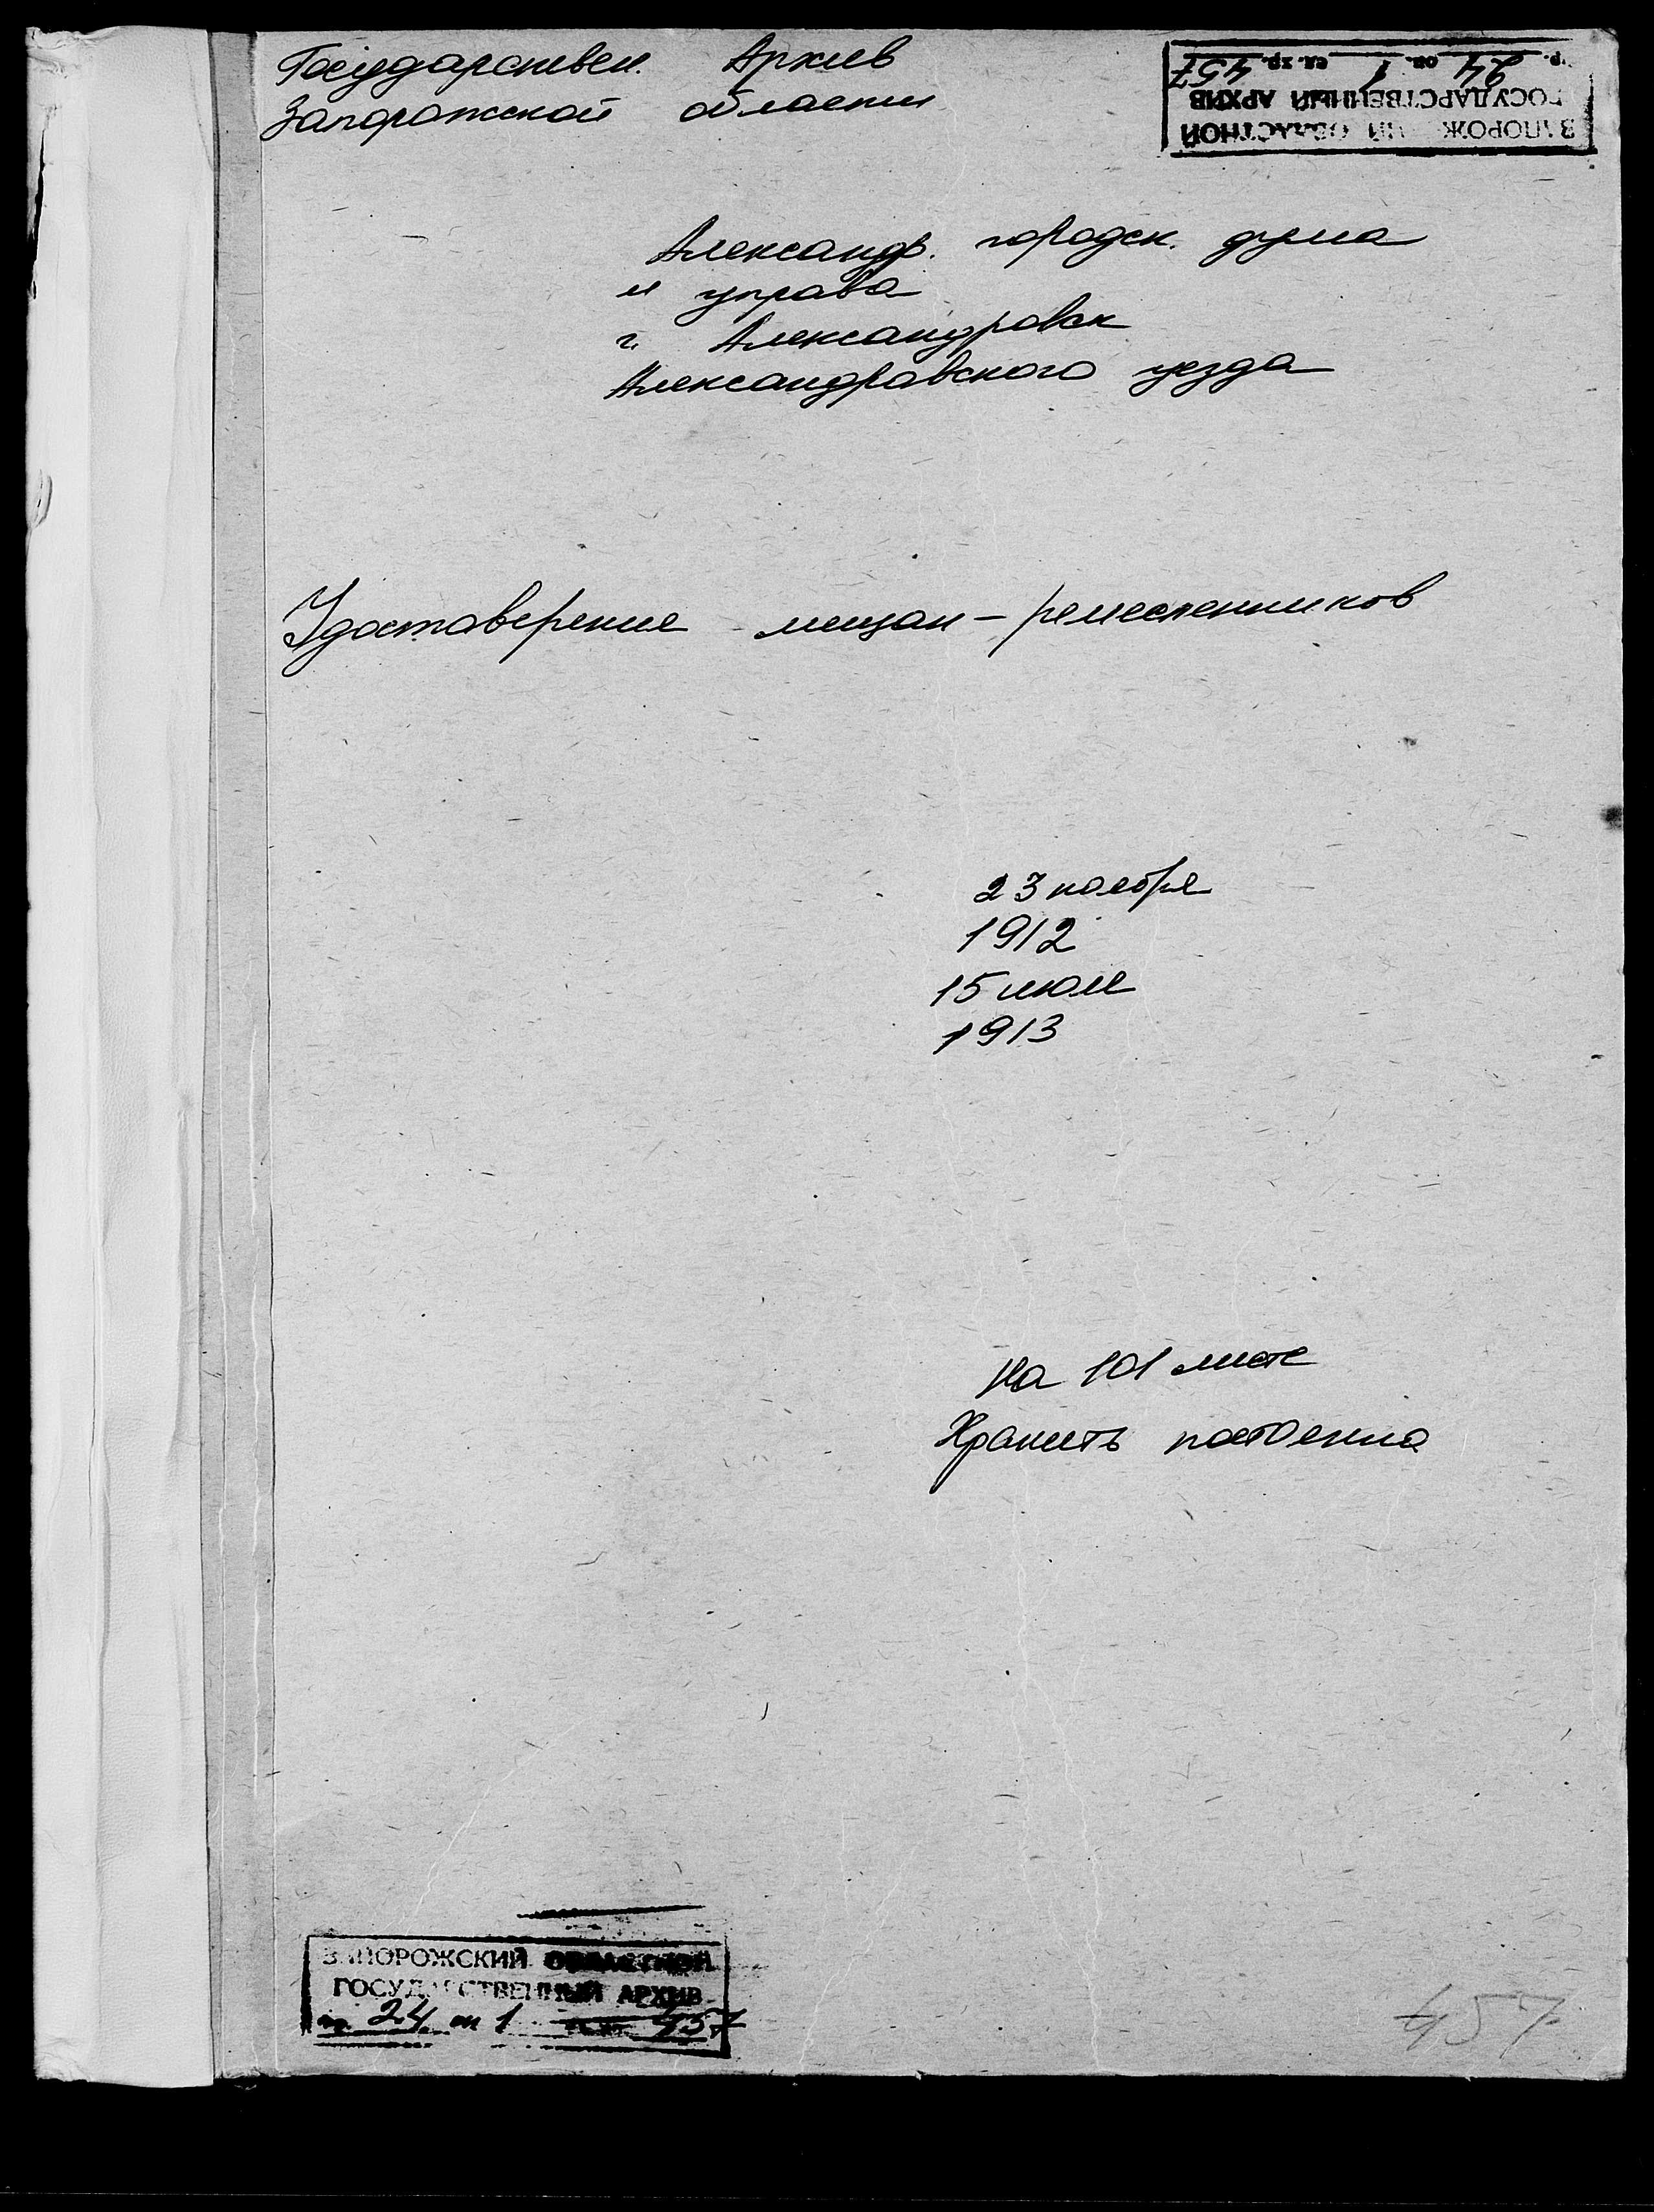 Государствен. Архив
Запорожской области
ЗАПОРОЖ ИЙ ОБЛАСТНОЙ
ГОСУДАРСТВЕННЫЙ АРХИВ
р. 24 оп. 1 ед. хр. 457
Александр. городск. дума
и управа
г. Александровск
Александровского уезда
Удостоверение мещан-ремесленников
23 ноября
1912
15 июля
1913
На 101 листе
Хранить постоянно
ЗАПОРОЖСКИЙ ОБЛАСТНОЙ
ГОСУДАРСТВЕННЫЙ АРХИВ
24 оп 1 457
457